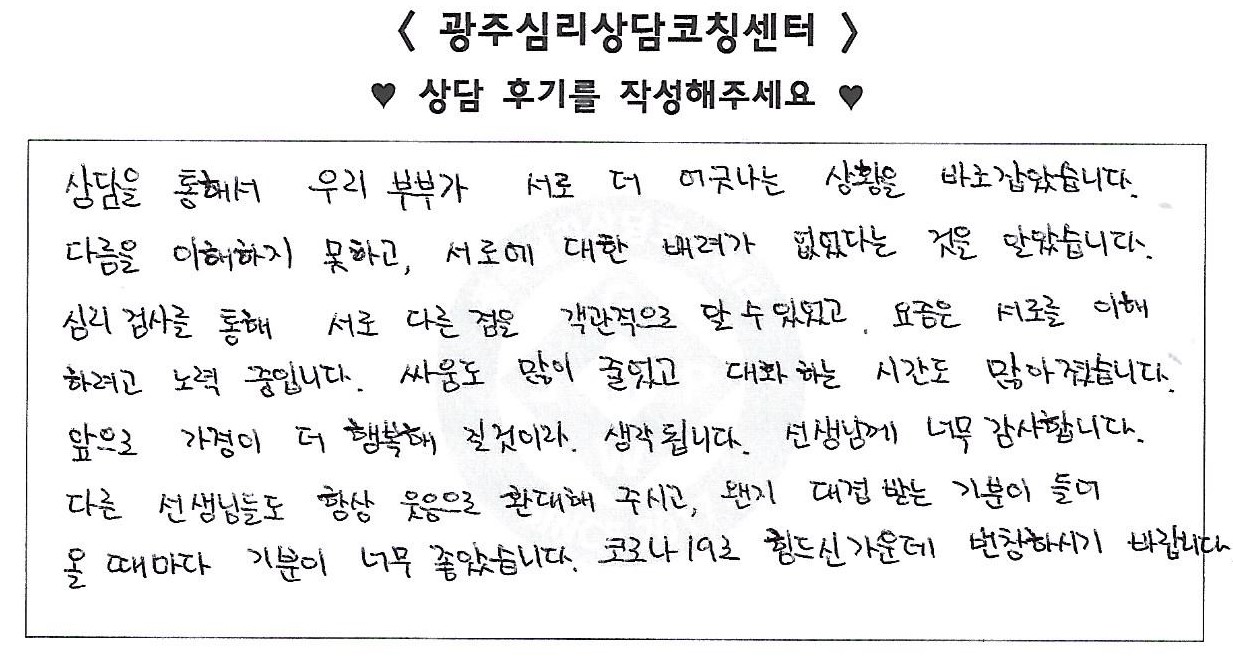 < 광주심리상담코칭센터 >
♥ 상담 후기를 작성해주세요 ♥
상담을 통해서 우리 부부가 서로 더 어긋나는 상황을 바로잡았습니다.
다름을 이해하지 못하고, 서로에 대한 배려가 없었다는 것을 알았습니다.
심리 검사를 통해 서로 다른 점을 객관적으로 알 수 있었고, 요즘은 서로를 이해
하려고 노력 중입니다. 싸움도 많이 줄었고 대화하는 시간도 많아졌습니다.
앞으로 가정이 더 행복해 질것이라 생각됩니다. 선생님께 너무 감사합니다.
다른 선생님들도 항상 웃음으로 환대해 주시고, 왠지 대접 받는 기분이 들어
올 때마다 기분이 너무 좋았습니다. 코로나19로 힘드신 가운데 번창하시기 바랍니다